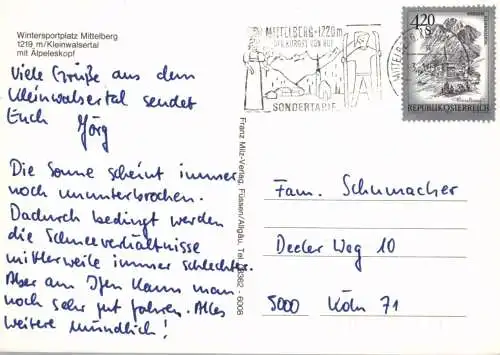 Wintersportplatz Mittelberg
1219 m/Kleinwalsertal
mit Älpeleskopf
Viele Grüße aus dem
Kleinwalsertal sendet
Euch Jörg
Die Sonne scheint immer
noch ununterbrochen.
Dadurch bedingt werden
die Schneeverhältnisse
mittlerweile immer schlechter.
Aber am Ifen kann man
noch sehr gut fahren. Alles
weitere mündlich!
Franz Milz-Verlag, Füssen/Allgäu, Tel. 08362 - 6008
MITTELBERG · 1220 m
SONDERTARIF
MITTELBERG
4.20
REPUBLIK ÖSTERREICH
Fam. Schumacher
Decker Weg 10
5000 Köln 71